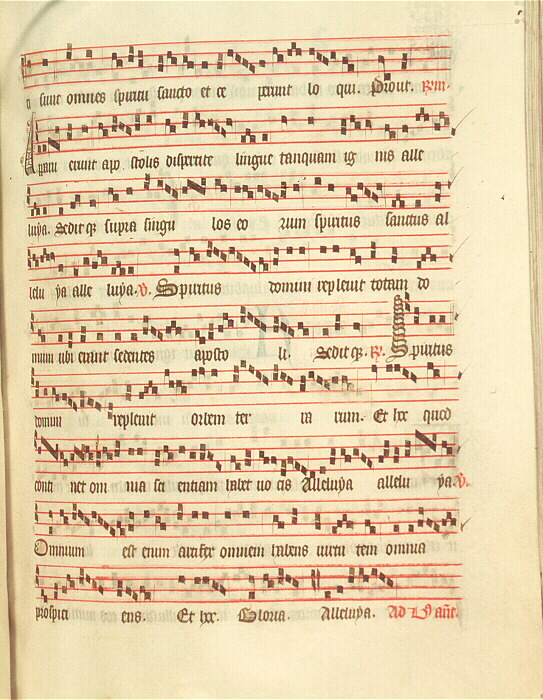 sunt omnes spiritu sancto et ce perunt lo qui. Prout. 
Apparu erunt apo stolis dispertite lingue tanquam ig nis alle
luya. Sedit qz supra singu los eo rum spiritus sanctus al
lelu ya alle luya. V. Spiritus domini replevit totam do
mum ubi erant sedentes aposto li. Sedit qz. R. Spiritus
domini replevit orbem ter ra rum. Et hoc quod
conti net om nia sci entiam habet vo cis Alleluya allelu ya. V.
Omnium est enim artifex omnem habens virtu tem omnia
prospici ens. Et hoc. Gloria. Alleluya. Ad